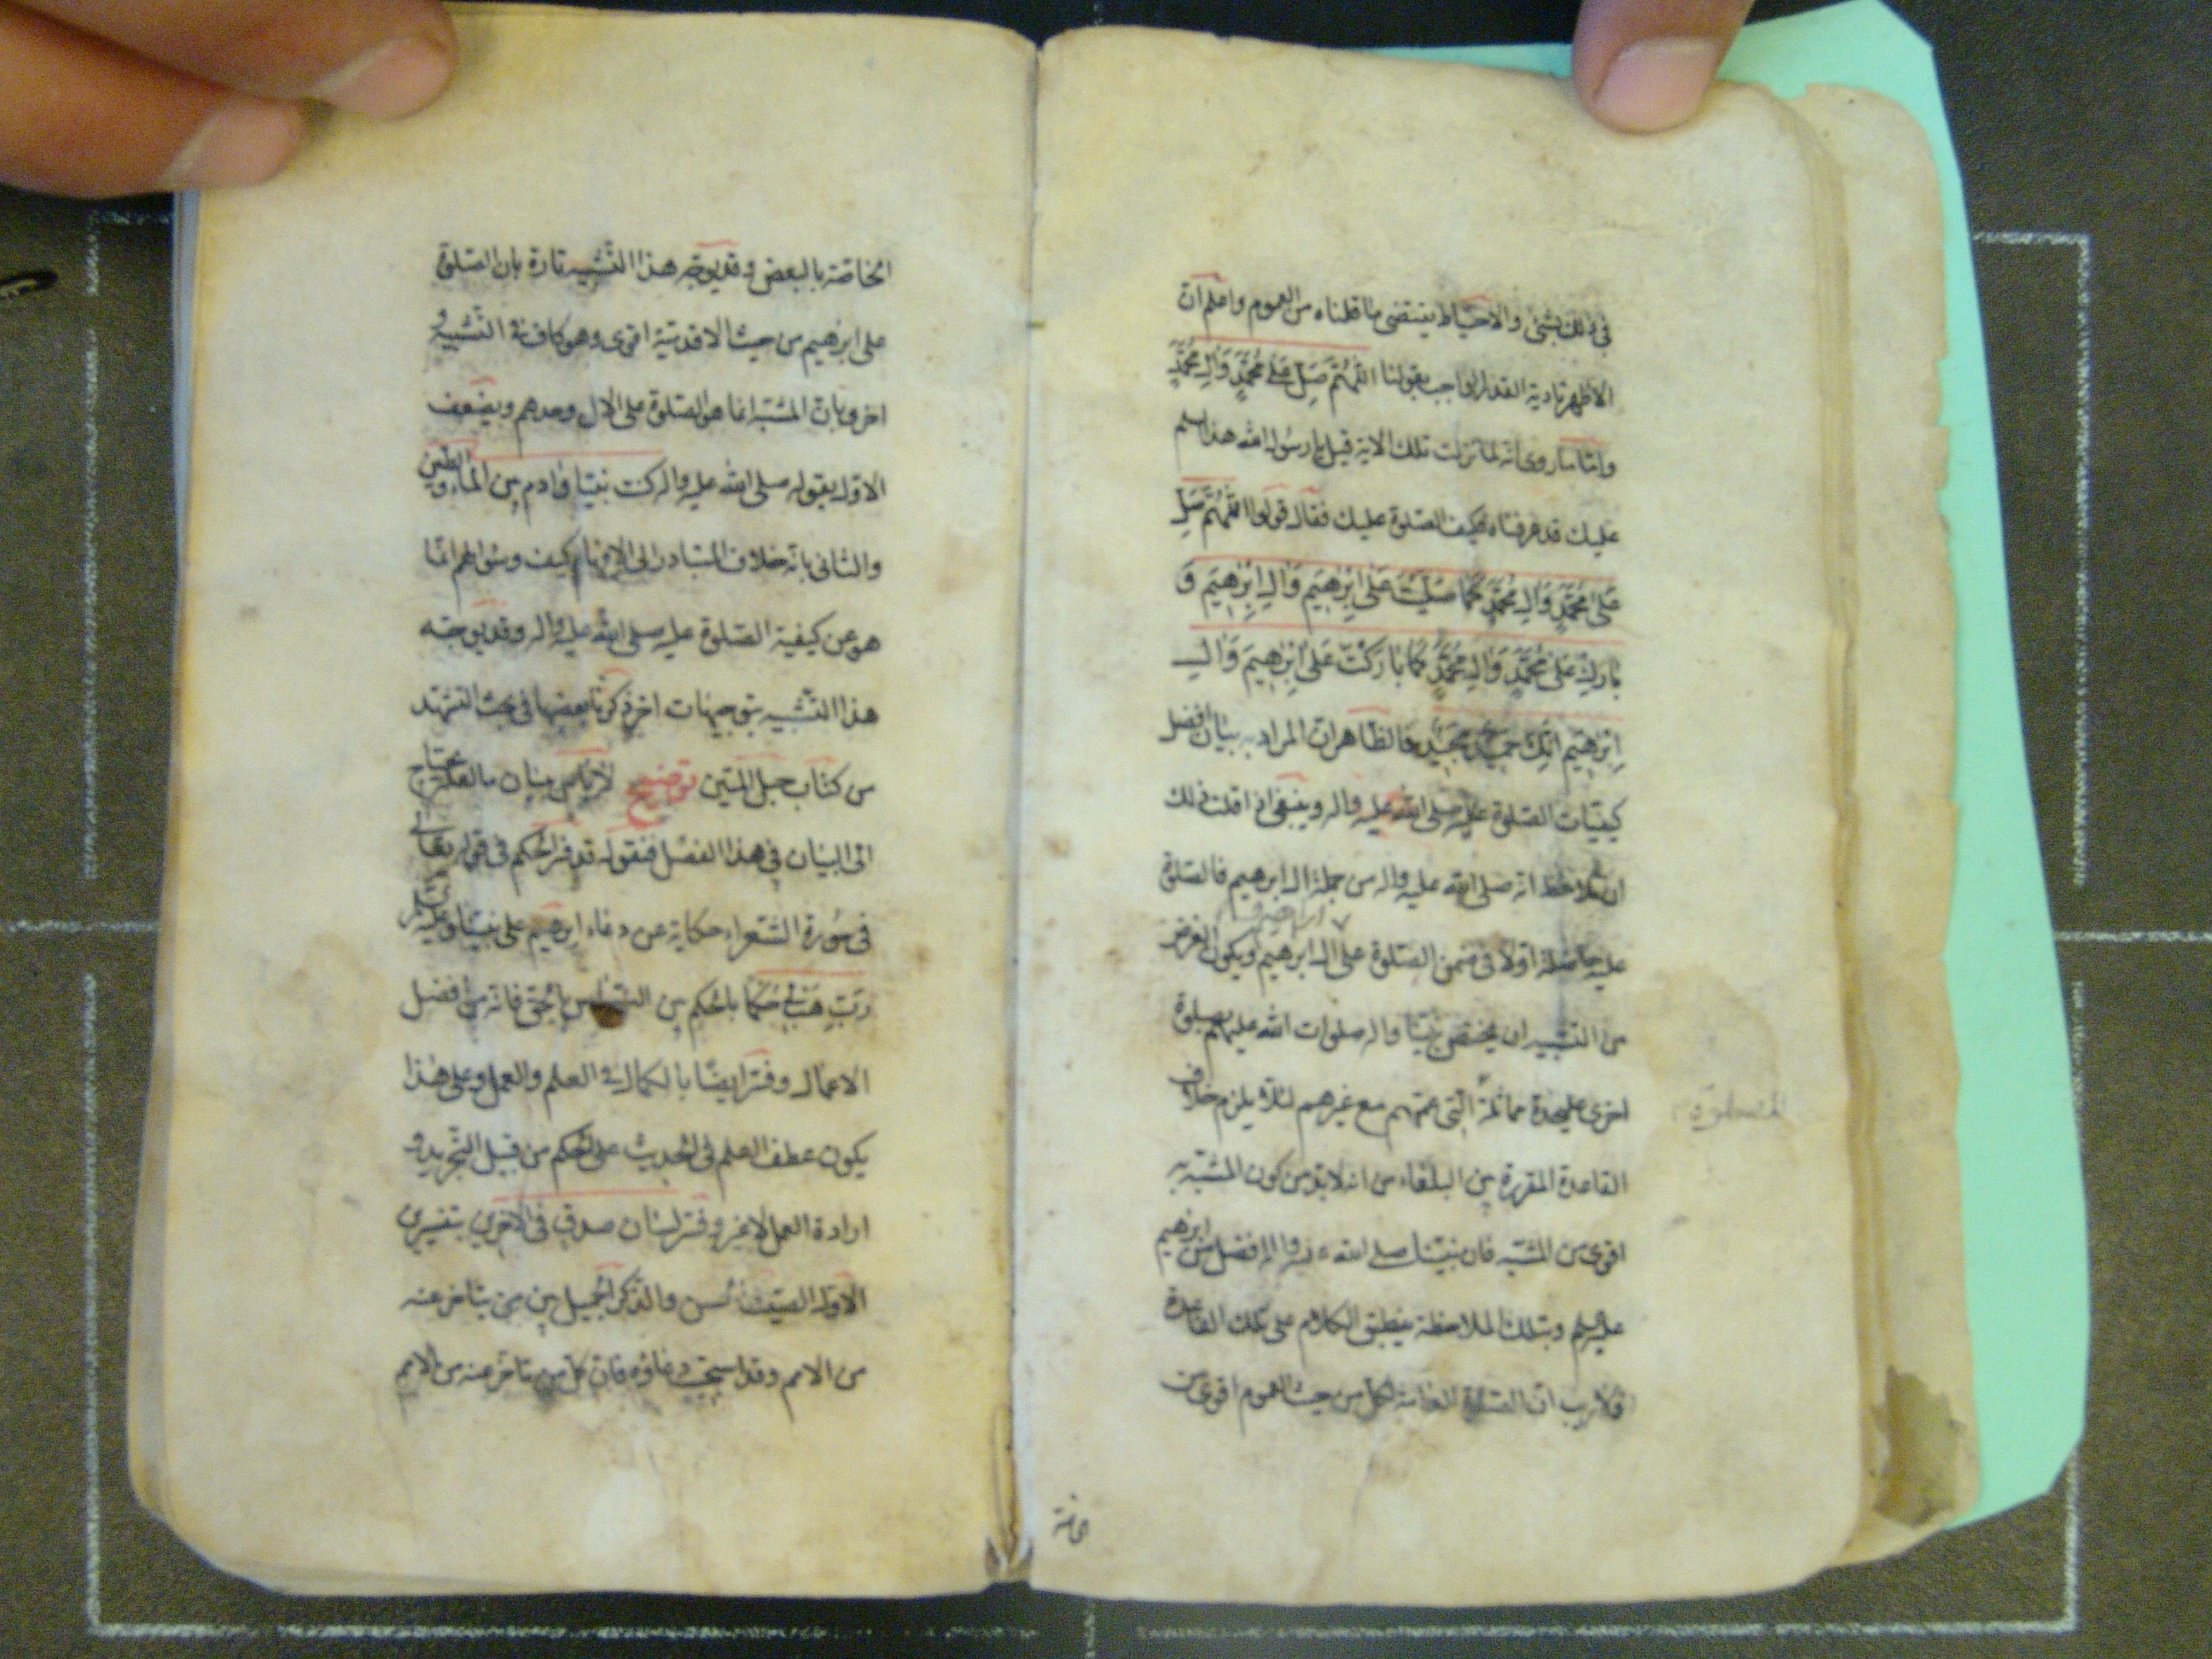 في ذلك بشئ والاحتياط يقتضي ما قلناه من العموم واعلم ان
الاظهر تادية القدر الواجب بقولنا اللّهُمَّ صَلِّ عَلى مُحَمَّدٍ وَالِ مُحَمَّدٍ
واما ما روى انه لما نزلت تلك الاية قيل يا رسول الله هذا السلم
عليك قد عرفناه فكيف الصلوة عليك فقال قولوا اللّهُمَّ صَلِّ
عَلى مُحَمَّدٍ وَالِ مُحَمَّدٍ كَمَا صَلَّيْتَ عَلى اِبْرهِيمَ وَالِ اِبْرهِيمَ وَ
بَارِكْ عَلى مُحَمَّدٍ وَالِ مُحَمَّدٍ كَمَا بَارَكْتَ عَلى اِبْرهِيمَ وَالِ
اِبْرهِيمَ اِنَّكَ حَمِيدٌ مَجِيدٌ فالظاهر ان المراد به بيان افضل
كيفيات الصلوة عليه صلى الله عليه واله وينبغي اذا قلت ذلك
ان تلاحظ انه صلى الله عليه واله من جملة ال ابرهيم فالصلوة
عليه حاصلة اولا في ضمن الصلوة على ال ابرهيم ويكون الغرض
من التشبيه ان يختص نبينا واله صلوات الله عليهم بصلوة
اخرى عليحدة مماثلة التي عمتهم مع غيرهم لئلا يلزم خلاف
القاعدة المقررة بين البلغاء من انه لا بد من كون المشبه به
اقوى من المشبه فان نبينا صلى الله عليه واله افضل من ابرهيم
عليه السلم وبتلك الملاحظة ينطبق الكلام على تلك القاعدة
فلا ريب ان الصلوة العامة للكل من حيث العموم اقوى من
الخاصة بالبعض وقد يوجه هذا التشبيه تارة بان الصلوة
على ابرهيم من حيث الاقدمية اقوى وهو كاف في التشبيه و
اخرى بان المشبه انما هو الصلوة على الال وحدهم ويضعف
الاول بقوله صلى الله عليه واله كنت نبيا وادم بين الماء والطين
والثاني بانه خلاف المتبادر الى الافهام كيف وسؤالهم انما
هو عن كيفية الصلوة عليه صلى الله عليه واله وقد يوجه
هذا التشبيه بتوجيهات اخر ذكرنا بعضها في بحث التشهد
من كتاب حبل المتين توضيح لا باس ببيان ما لعله يحتاج
الى البيان في هذا الفصل فنقول قد فسر الحكم في قوله تعالى
في سورة الشعراء حكاية عن دعاء ابرهيم على نبينا وعليه السلم
رَبِّ هَبْ لِي حُكْمًا بالحكم بين الناس بالحق فانه من افضل
الاعمال وفسر ايضا بالكمال في العلم والعمل وعلى هذا
يكون عطف العلم في الحديث على الحكم من قبيل التجريد و
ارادة العمل لا غير وفسر لسان صدق في الاخرين بتفسيرين
الاول الصيت الحسن والذكر الجميل بين من يتاخر عنه
من الامم وقد استجيب دعاؤه فان كل من تاخر عنه من الامم